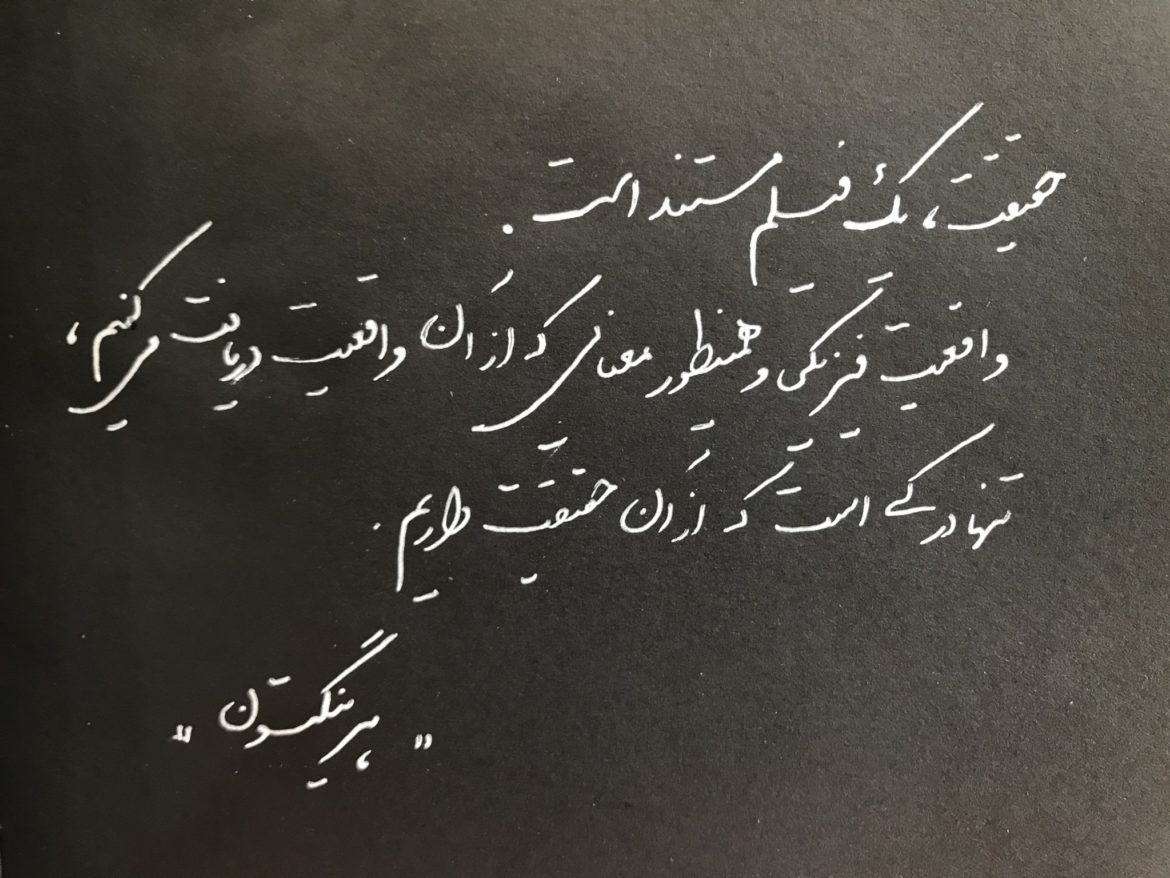 حقیقت، یک فیلم مستند است.
واقعیت فیزیکی و همینطور معنایی که از آن واقعیت دریافت می کنیم،
تنها درکی است که از آن حقیقت داریم.
"هرینگتون"